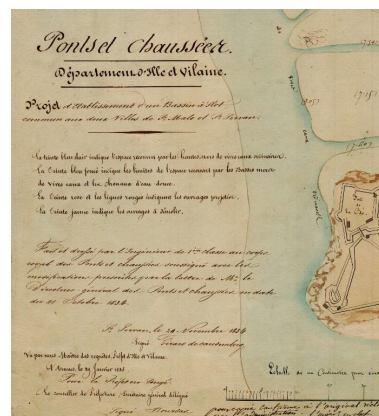 Ponts et chaussées.
Département d'Ille et Vilaine.
Projet d'établissement d'un Bassin à flot
commun aux deux Villes de St. Malo et St. Servan.
La teinte bleu clair indique l'espace recouvert par les hautes mers de vives eaux ordinaires.
La teinte bleu foncé indique les limites de l'espace recouvert par les Basses mers
de vives eaux et les chenaux d'eau douce.
La teinte rose et les lignes rouges indiquent les ouvrages projetés.
La teinte jaune indique les ouvrages à démolir.
Fait et dressé par l'Ingénieur de 1re classe au corps
royal des Ponts et chaussées soussigné avec les
modifications prescrites par la lettre de Mr. le
Directeur général des Ponts et chaussées en date
du 21 Octobre 1834.
St. Servan, le 29 Novembre 1834
Signé
Vu par nous Maître des requêtes, Préfet d'Ille et Vilaine.
A Rennes, le 29 Janvier 1835
Pour le Préfet
Le conseiller de Préfecture, Secrétaire général délégué
Signé
Echelle de un Centimètre pour
pour copie conforme à l'original